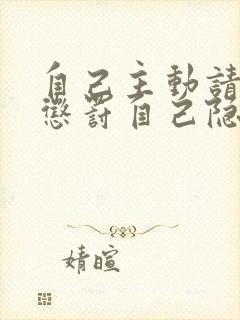 自己主動請
懲罰自己隐
婧暄